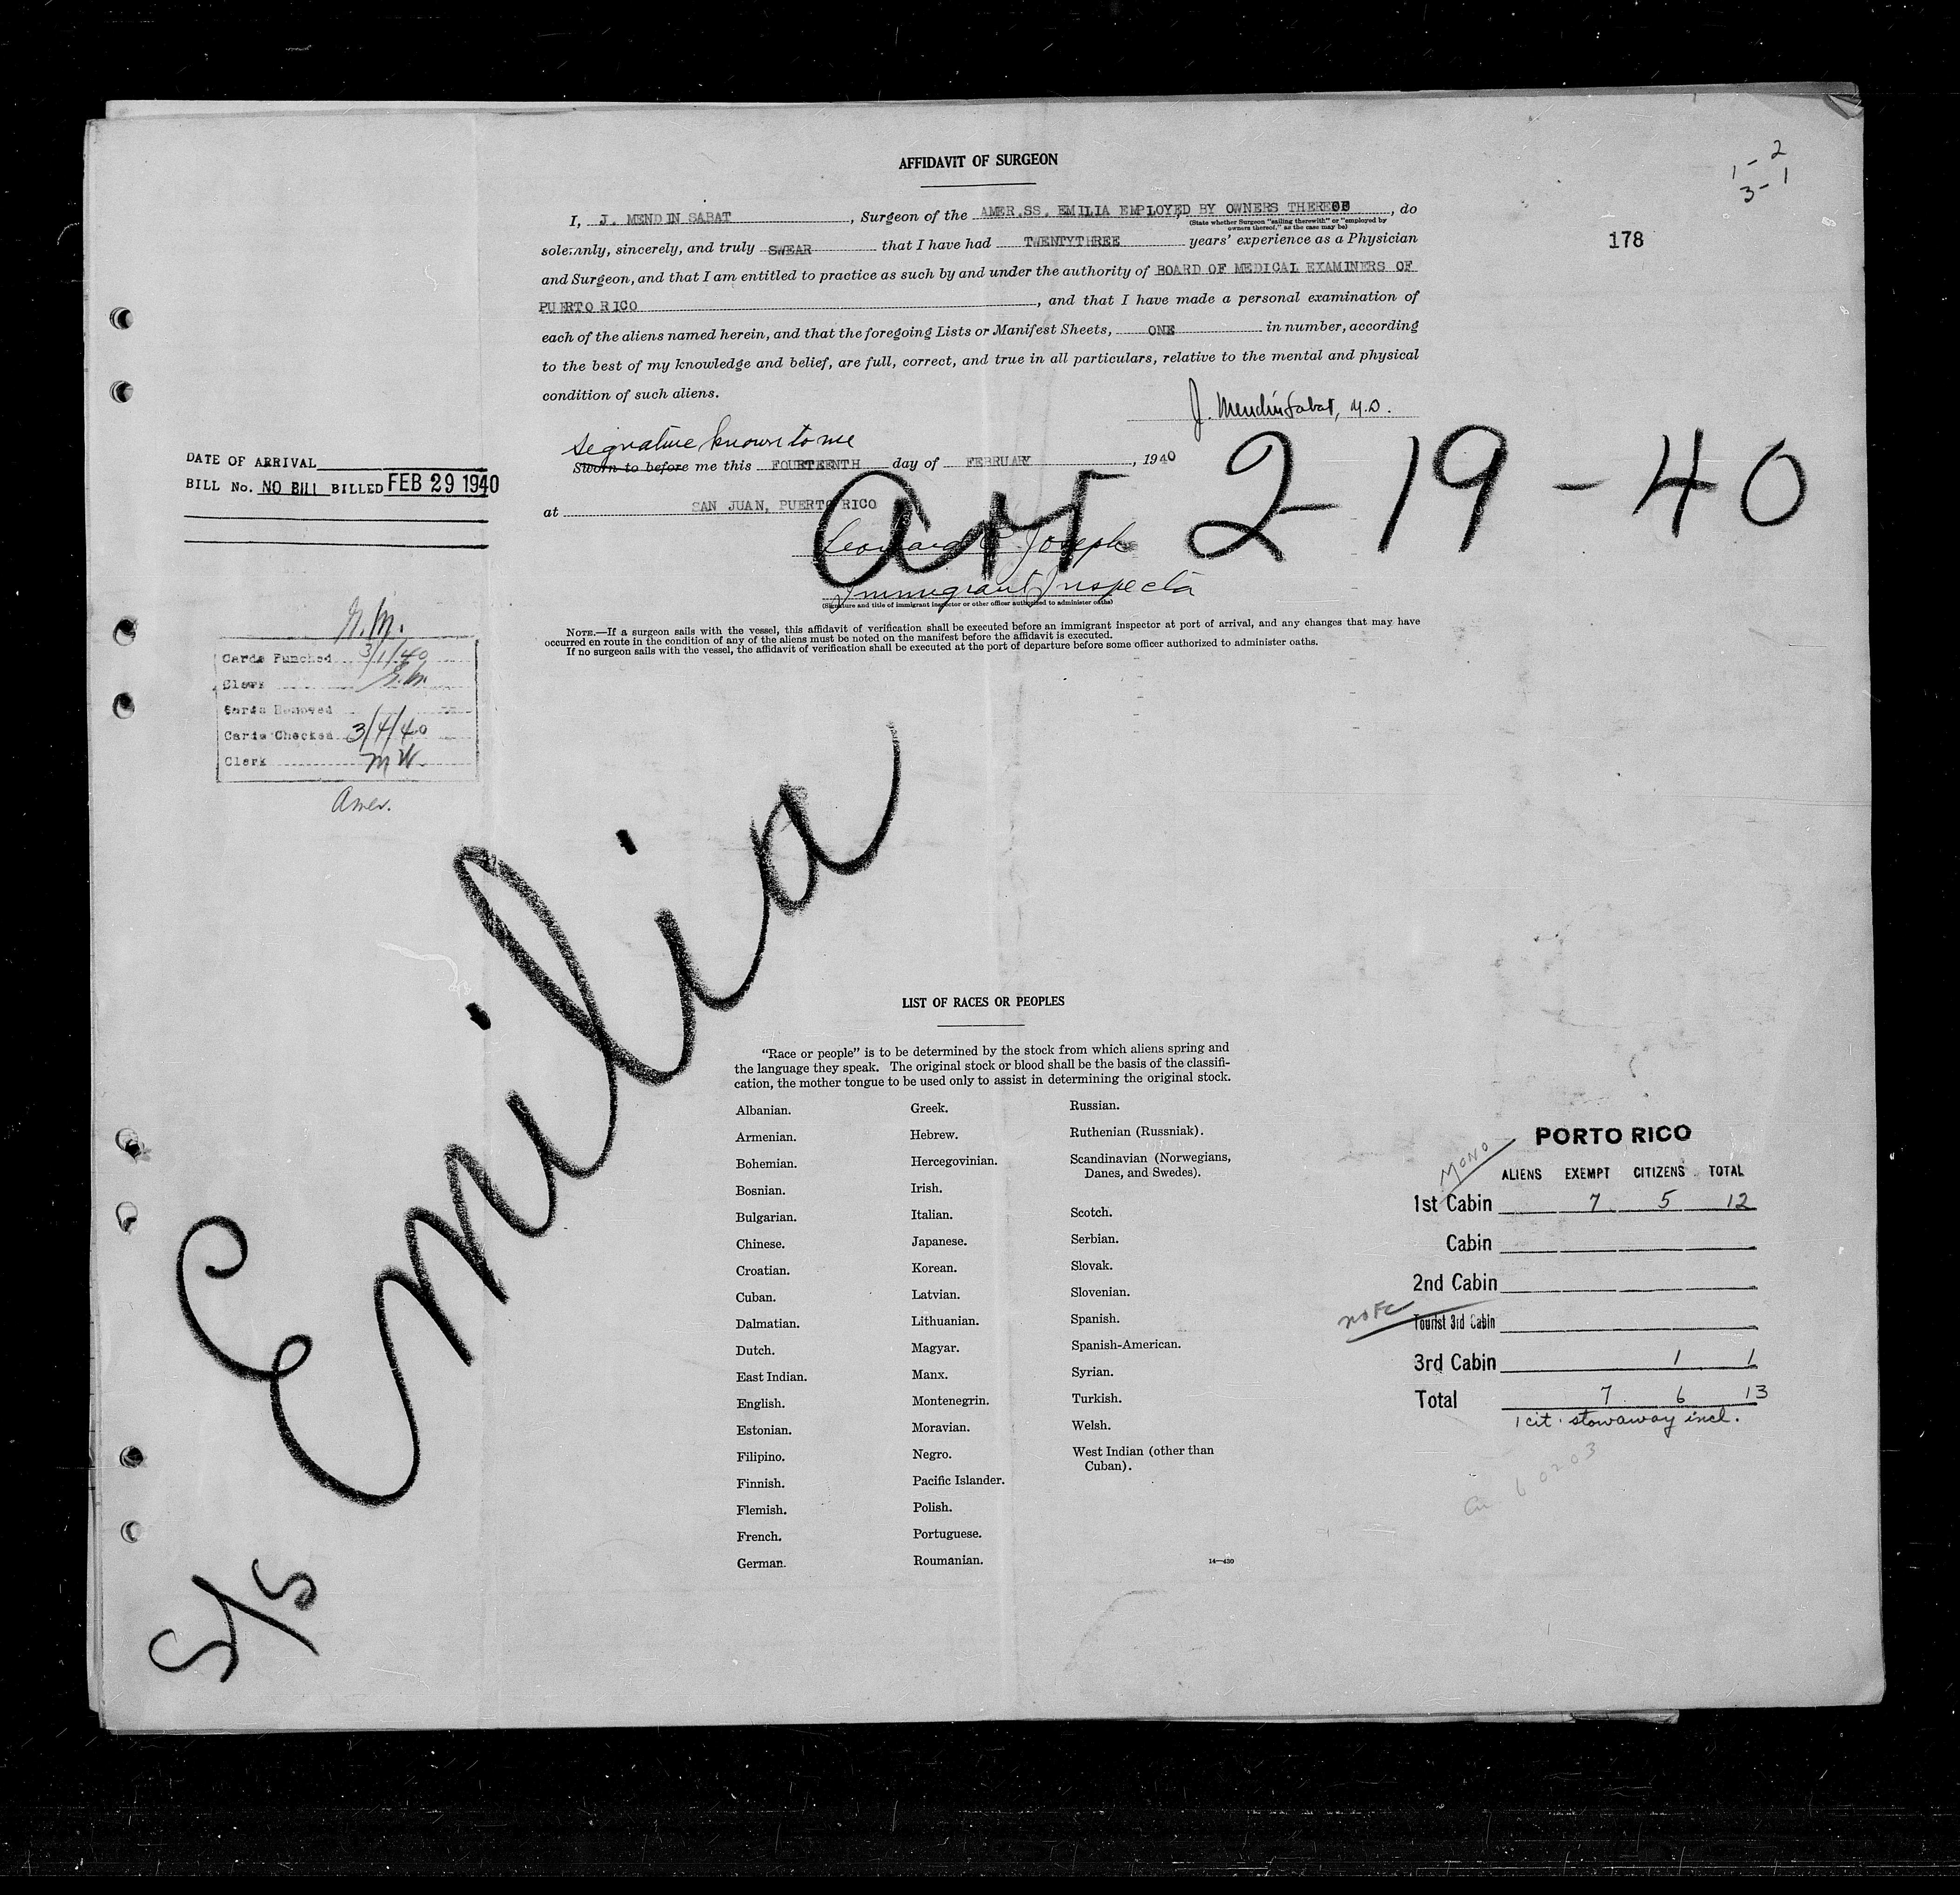 AFFIDAVIT OF SURGEON
1 - 2
3 - 1
178
I, J. MENDIN SABAT, Surgeon of the AMER.SS. EMILIA EMPLOYED BY OWNERS THEREOF, do
(State whether Surgeon "sailing therewith" or "employed by
owners thereof," as the case may be)
solemnly, sincerely, and truly SWEAR that I have had TWENTYTHREE years' experience as a Physician
and Surgeon, and that I am entitled to practice as such by and under the authority of BOARD OF MEDICAL EXAMINERS OF
PUERTO RICO, and that I have made a personal examination of
each of the aliens named herein, and that the foregoing Lists or Manifest Sheets, ONE in number, according
to the best of my knowledge and belief, are full, correct, and true in all particulars, relative to the mental and physical
condition of such aliens.
J. Mendin Sabat, M.D.
Signature known to me
Sworn to before me this FOURTEENTH day of FEBRUARY, 1940
at SAN JUAN, PUERTO RICO
Arr 2-19-40
Leonard C. Joseph
Immigrant Inspector
(Signature and title of immigrant inspector or other officer authorized to administer oaths)
NOTE.—If a surgeon sails with the vessel, this affidavit of verification shall be executed before an immigrant inspector at port of arrival, and any changes that may have
occurred en route in the condition of any of the aliens must be noted on the manifest before the affidavit is executed.
If no surgeon sails with the vessel, the affidavit of verification shall be executed at the port of departure before some officer authorized to administer oaths.
DATE OF ARRIVAL
BILL No. NO BILL BILLED FEB 29 1940
Cards Punched 3/1/40
Clerk
Cards Removed
Cards Checked 3/4/40
Clerk MW
Amer.
S/S Emilia
LIST OF RACES OR PEOPLES
"Race or people" is to be determined by the stock from which aliens spring and
the language they speak. The original stock or blood shall be the basis of the classifi-
cation, the mother tongue to be used only to assist in determining the original stock.
Albanian.
Armenian.
Bohemian.
Bosnian.
Bulgarian.
Chinese.
Croatian.
Cuban.
Dalmatian.
Dutch.
East Indian.
English.
Estonian.
Filipino.
Finnish.
Flemish.
French.
German.
Greek.
Hebrew.
Hercegovinian.
Irish.
Italian.
Japanese.
Korean.
Latvian.
Lithuanian.
Magyar.
Manx.
Montenegrin.
Moravian.
Negro.
Pacific Islander.
Polish.
Portuguese.
Roumanian.
Russian.
Ruthenian (Russniak).
Scandinavian (Norwegians,
Danes, and Swedes).
Scotch.
Serbian.
Slovak.
Slovenian.
Spanish.
Spanish-American.
Syrian.
Turkish.
Welsh.
West Indian (other than
Cuban).
14—430
PORTO RICO
MONO
ALIENS EXEMPT CITIZENS TOTAL
1st Cabin 7 5 12
Cabin
2nd Cabin
Tourist 3rd Cabin
3rd Cabin 1 1
Total 7 6 13
1 cit. stowaway incl.